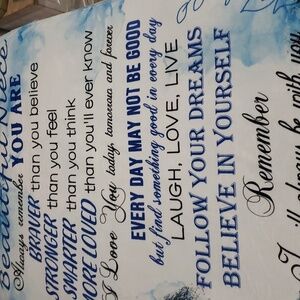 Beautiful Niece
Always remember YOU ARE
BRAVER than you believe
STRONGER than you feel
SMARTER than you think
MORE LOVED than you'll ever know
I Love You today, tomorrow and forever
EVERY DAY MAY NOT BE GOOD
but find something good in every day
LAUGH, LOVE, LIVE
FOLLOW YOUR DREAMS
BELIEVE IN YOURSELF
Remember
I will always be with you